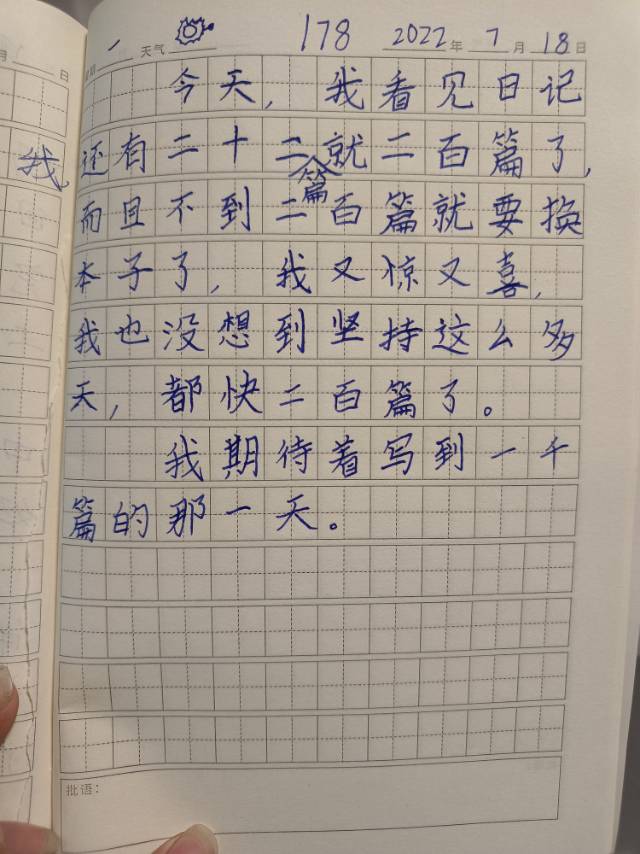 星期一 天气 178 2022年7月18日
今天，我看见日记
还有二十二篇就二百篇了，
而且不到二百篇就要换
本子了，我又惊又喜，
我也没想到坚持这么多
天，都快二百篇了。
我期待着写到一千
篇的那一天。
批语：
日
我